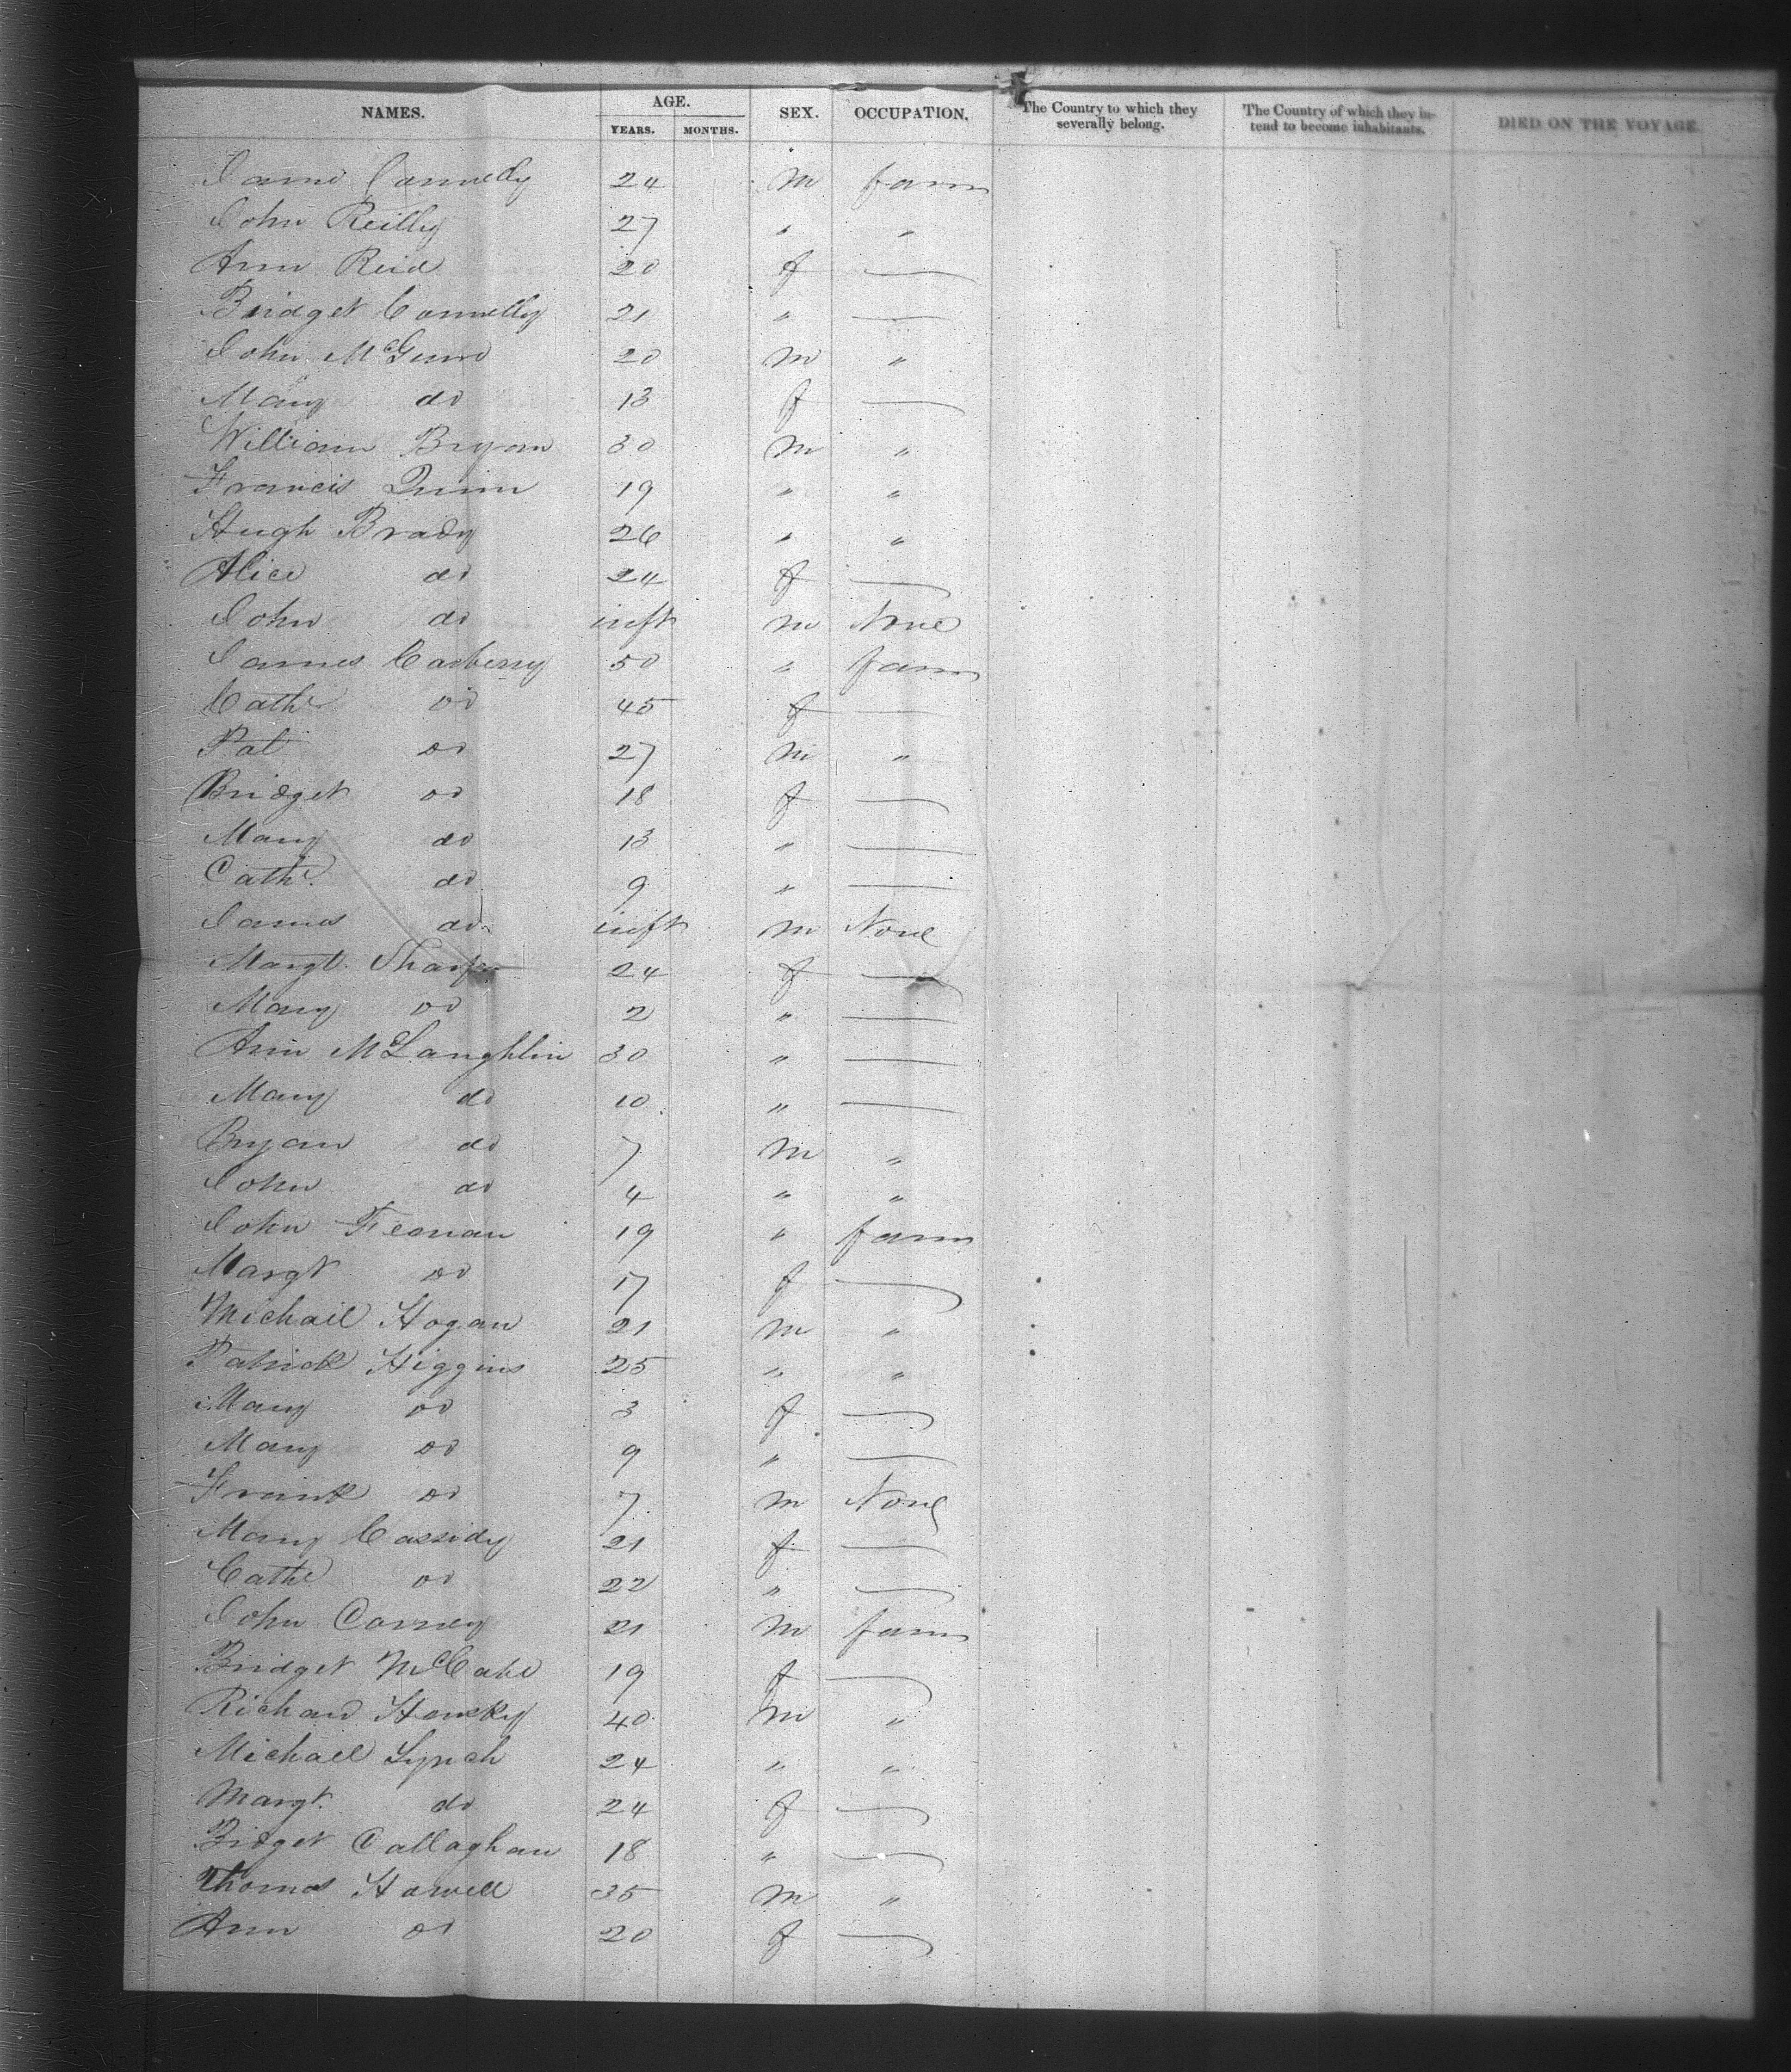 NAMES. AGE. SEX. OCCUPATION. The Country to which they severally belong. The Country of which they intend to become inhabitants. DIED ON THE VOYAGE.
YEARS. MONTHS.
James 24 m farm
John Reilly 27 " "
Ann Reid 20 f —
Bridget Connelly 21 " —
John McGinn 20 m "
Mary do 13 f —
William Bryan 30 m "
Francis Quinn 19 " "
Hugh Brady 26 " "
Alice do 24 f —
John do inft m None
James Carberry 50 " farm
Cathe do 45 f —
Pat do 27 m "
Bridget do 18 f —
Mary do 13 " —
Cathe do 9 " —
James do inft m None
Margt. Sharpe 24 f —
Mary do 2 " —
Ann McLaughlin 30 " —
Mary do 10 " —
Bryan do 7 m "
John do 4 " "
John 19 " farm
Margt do 17 f —
Michail Hogan 21 m "
Patrick Higgins 25 " "
Mary do 3 f —
Mary do 9 " —
Frank do 7 m None
Mary Cassidy 21 f —
Cathe do 22 " —
John Carney 21 m farm
Bridget McCabe 19 f —
Richard 40 m "
Michael Lynch 24 " "
Margt. do 24 f —
Bidget Callaghan 18 " —
Thomas Howell 35 m "
Ann do 20 f —